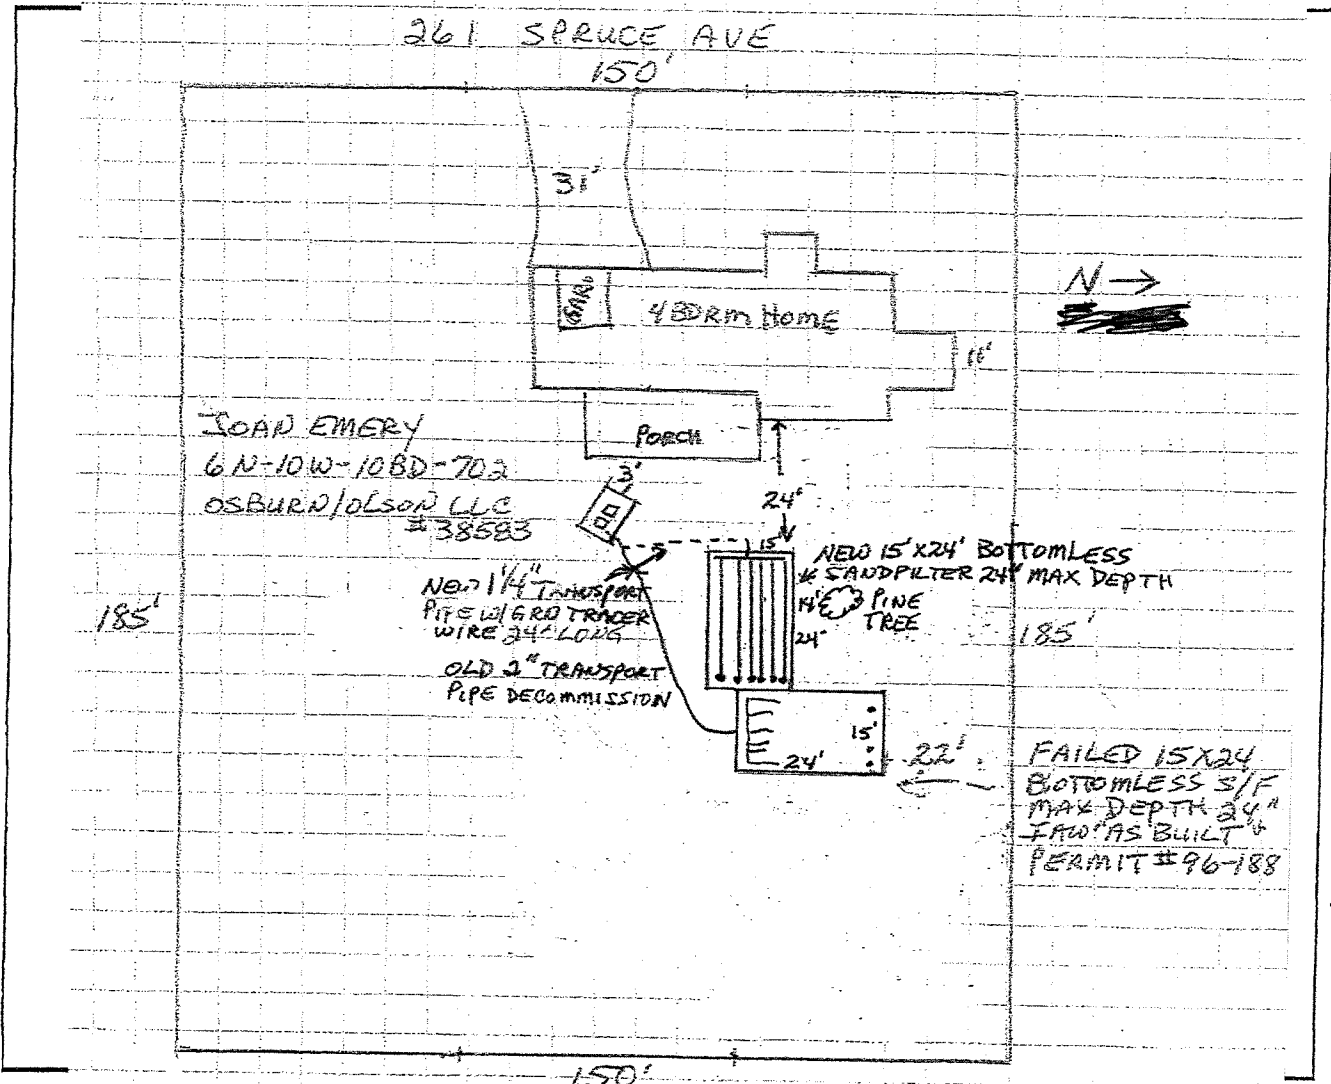 261 SPRUCE AVE
150'
31'
N →
GAR.
4 BDRM HOME
11'
PORCH
JOAN EMERY
6N-10W-10BD-702
OSBURN/OLSON LLC
#38583
3'
24'
15'
NEW 15'X24' BOTTOMLESS
SANDFILTER 24" MAX DEPTH
14'
PINE
TREE
24'
NEW 1 1/4" TRANSPORT
PIPE W/GRD TRACER
WIRE 24' LONG
185'
185'
OLD 2" TRANSPORT
PIPE DECOMMISSION
15'
24'
22'
FAILED 15X24
BOTTOMLESS S/F
MAX DEPTH 24"
"AS BUILT"
PERMIT #96-188
150'